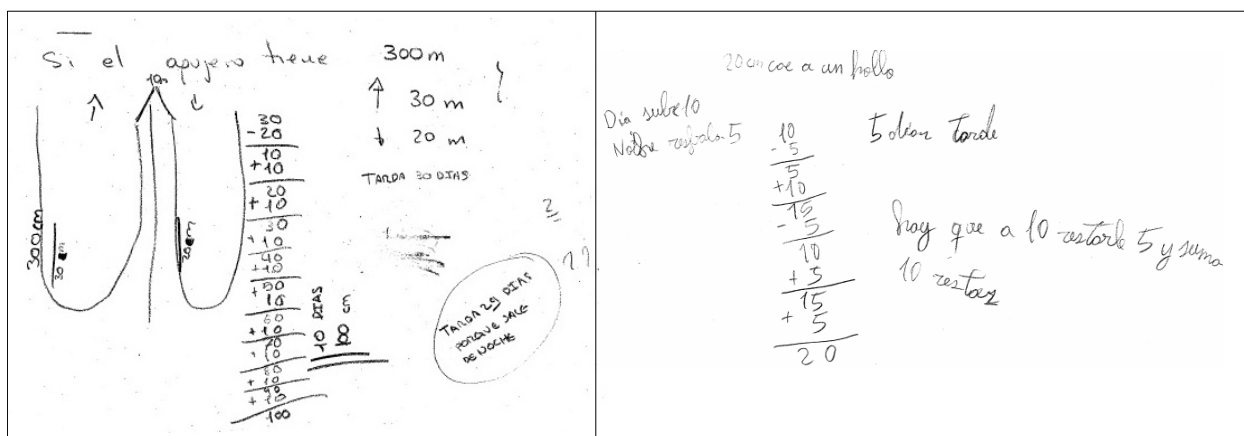 Si el agujero tiene 300 m
10m
↑ ↓
↑ 30 m
↓ 20 m
TARDA 30 DIAS
300cm
30 cm
20 cm
30
- 20
10
+ 10
20
+ 10
30
+ 10
40
+ 10
+ 50
10
60
+ 10
70
+ 10
80
+ 10
90
+ 10
100
10 DIAS
100 cm
TARDA 29 DIAS
PORQUE SALE
DE NOCHE
20 cm cae a un hollo
Dia sube 10
Noche resvala 5
10
- 5
5
+ 10
15
- 5
10
+ 5
15
+ 5
20
5 dias tarde
hay que a 10 restarle 5 y suma
10 restar